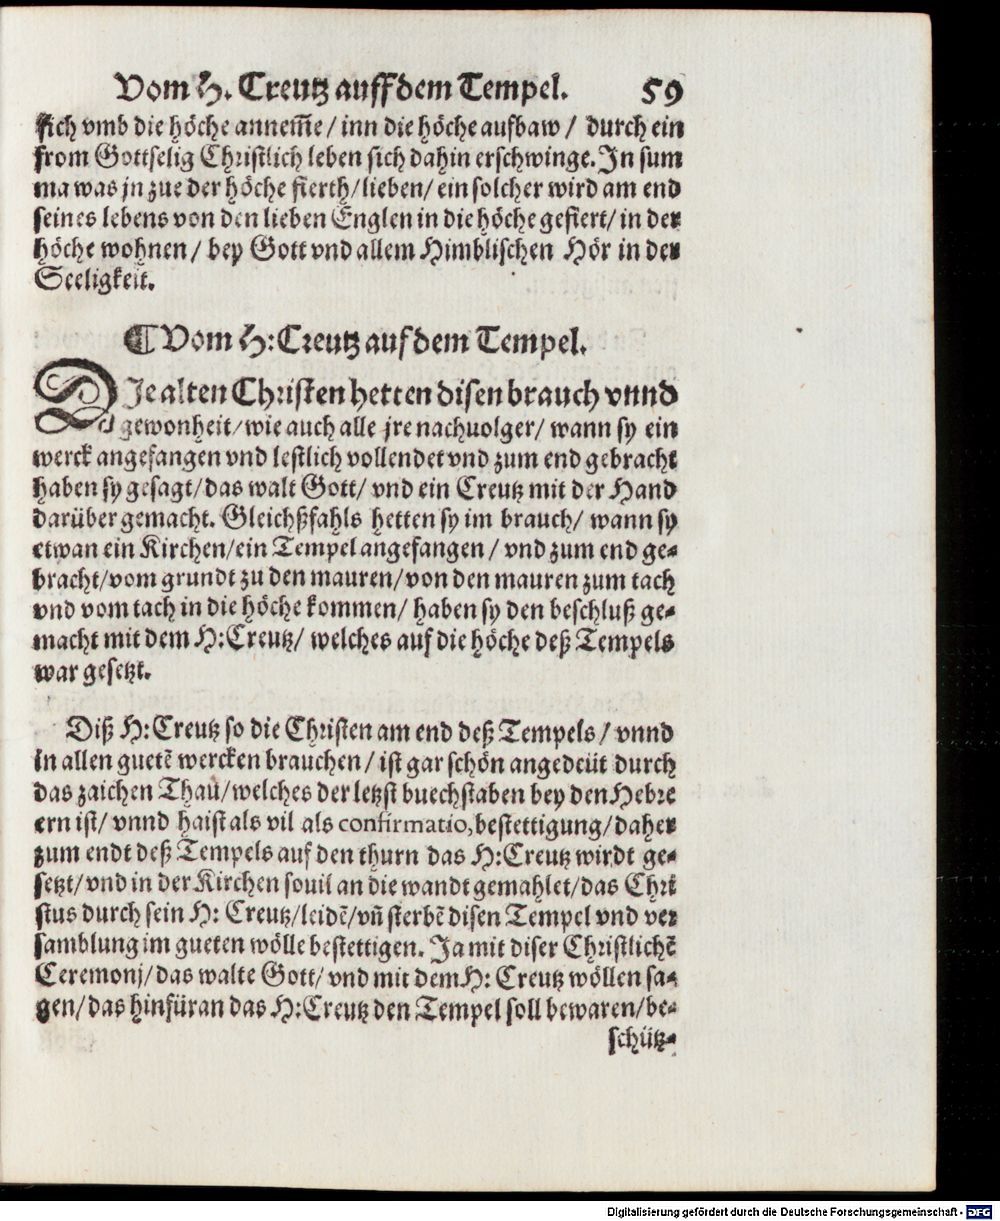 Vom H. Creutz auff dem Tempel. 59
sich vmb die höche anneme̅ / inn die höche aufbaw / durch ein
from Gottselig Christlich leben sich dahin erschwinge. In sum
ma was jn zue der höche fierth / lieben / ein solcher wird am end
seines lebens von den lieben Englen in die höche gefiert / in der
höche wohnen / bey Gott vnd allem Himblischen Hör in der
Seeligkeit.
¶ Vom H: Creutz auf dem Tempel.
DJe alten Christen hetten disen brauch vnnd
gewonheit / wie auch alle jre nachuolger / wann sy ein
werck angefangen vnd lestlich vollendet vnd zum end gebracht
haben sy gesagt / das walt Gott / vnd ein Creutz mit der Hand
darüber gemacht. Gleichßfahls hetten sy im brauch / wann sy
etwan ein Kirchen / ein Tempel angefangen / vnd zum end ge⸗
bracht / vom grundt zu den mauren / von den mauren zum tach
vnd vom tach in die höche kommen / haben sy den beschluß ge⸗
macht mit dem H: Creutz / welches auf die höche deß Tempels
war gesetzt.
Diß H: Creutz so die Christen am end deß Tempels / vnnd
in allen guetē wercken brauchen / ist gar schön angedeüt durch
das zaichen Thau / welches der letzst buechstaben bey den Hebre
ern ist / vnnd haist als vil als confirmatio, bestettigung / daher
zum endt deß Tempels auf den thurn das H: Creutz wirdt ge⸗
setzt / vnd in der Kirchen souil an die wandt gemahlet / das Chri
stus durch sein H: Creutz / leidē / vn̄ sterbē disen Tempel vnd ver
samblung im gueten wölle bestettigen. Ja mit diser Christlichē
Ceremonj / das walte Gott / vnd mit dem H: Creutz wöllen sa⸗
gen / das hinfüran das H: Creutz den Tempel soll bewaren / be⸗
schütz⸗
Digitalisierung gefördert durch die Deutsche Forschungsgemeinschaft - DFG